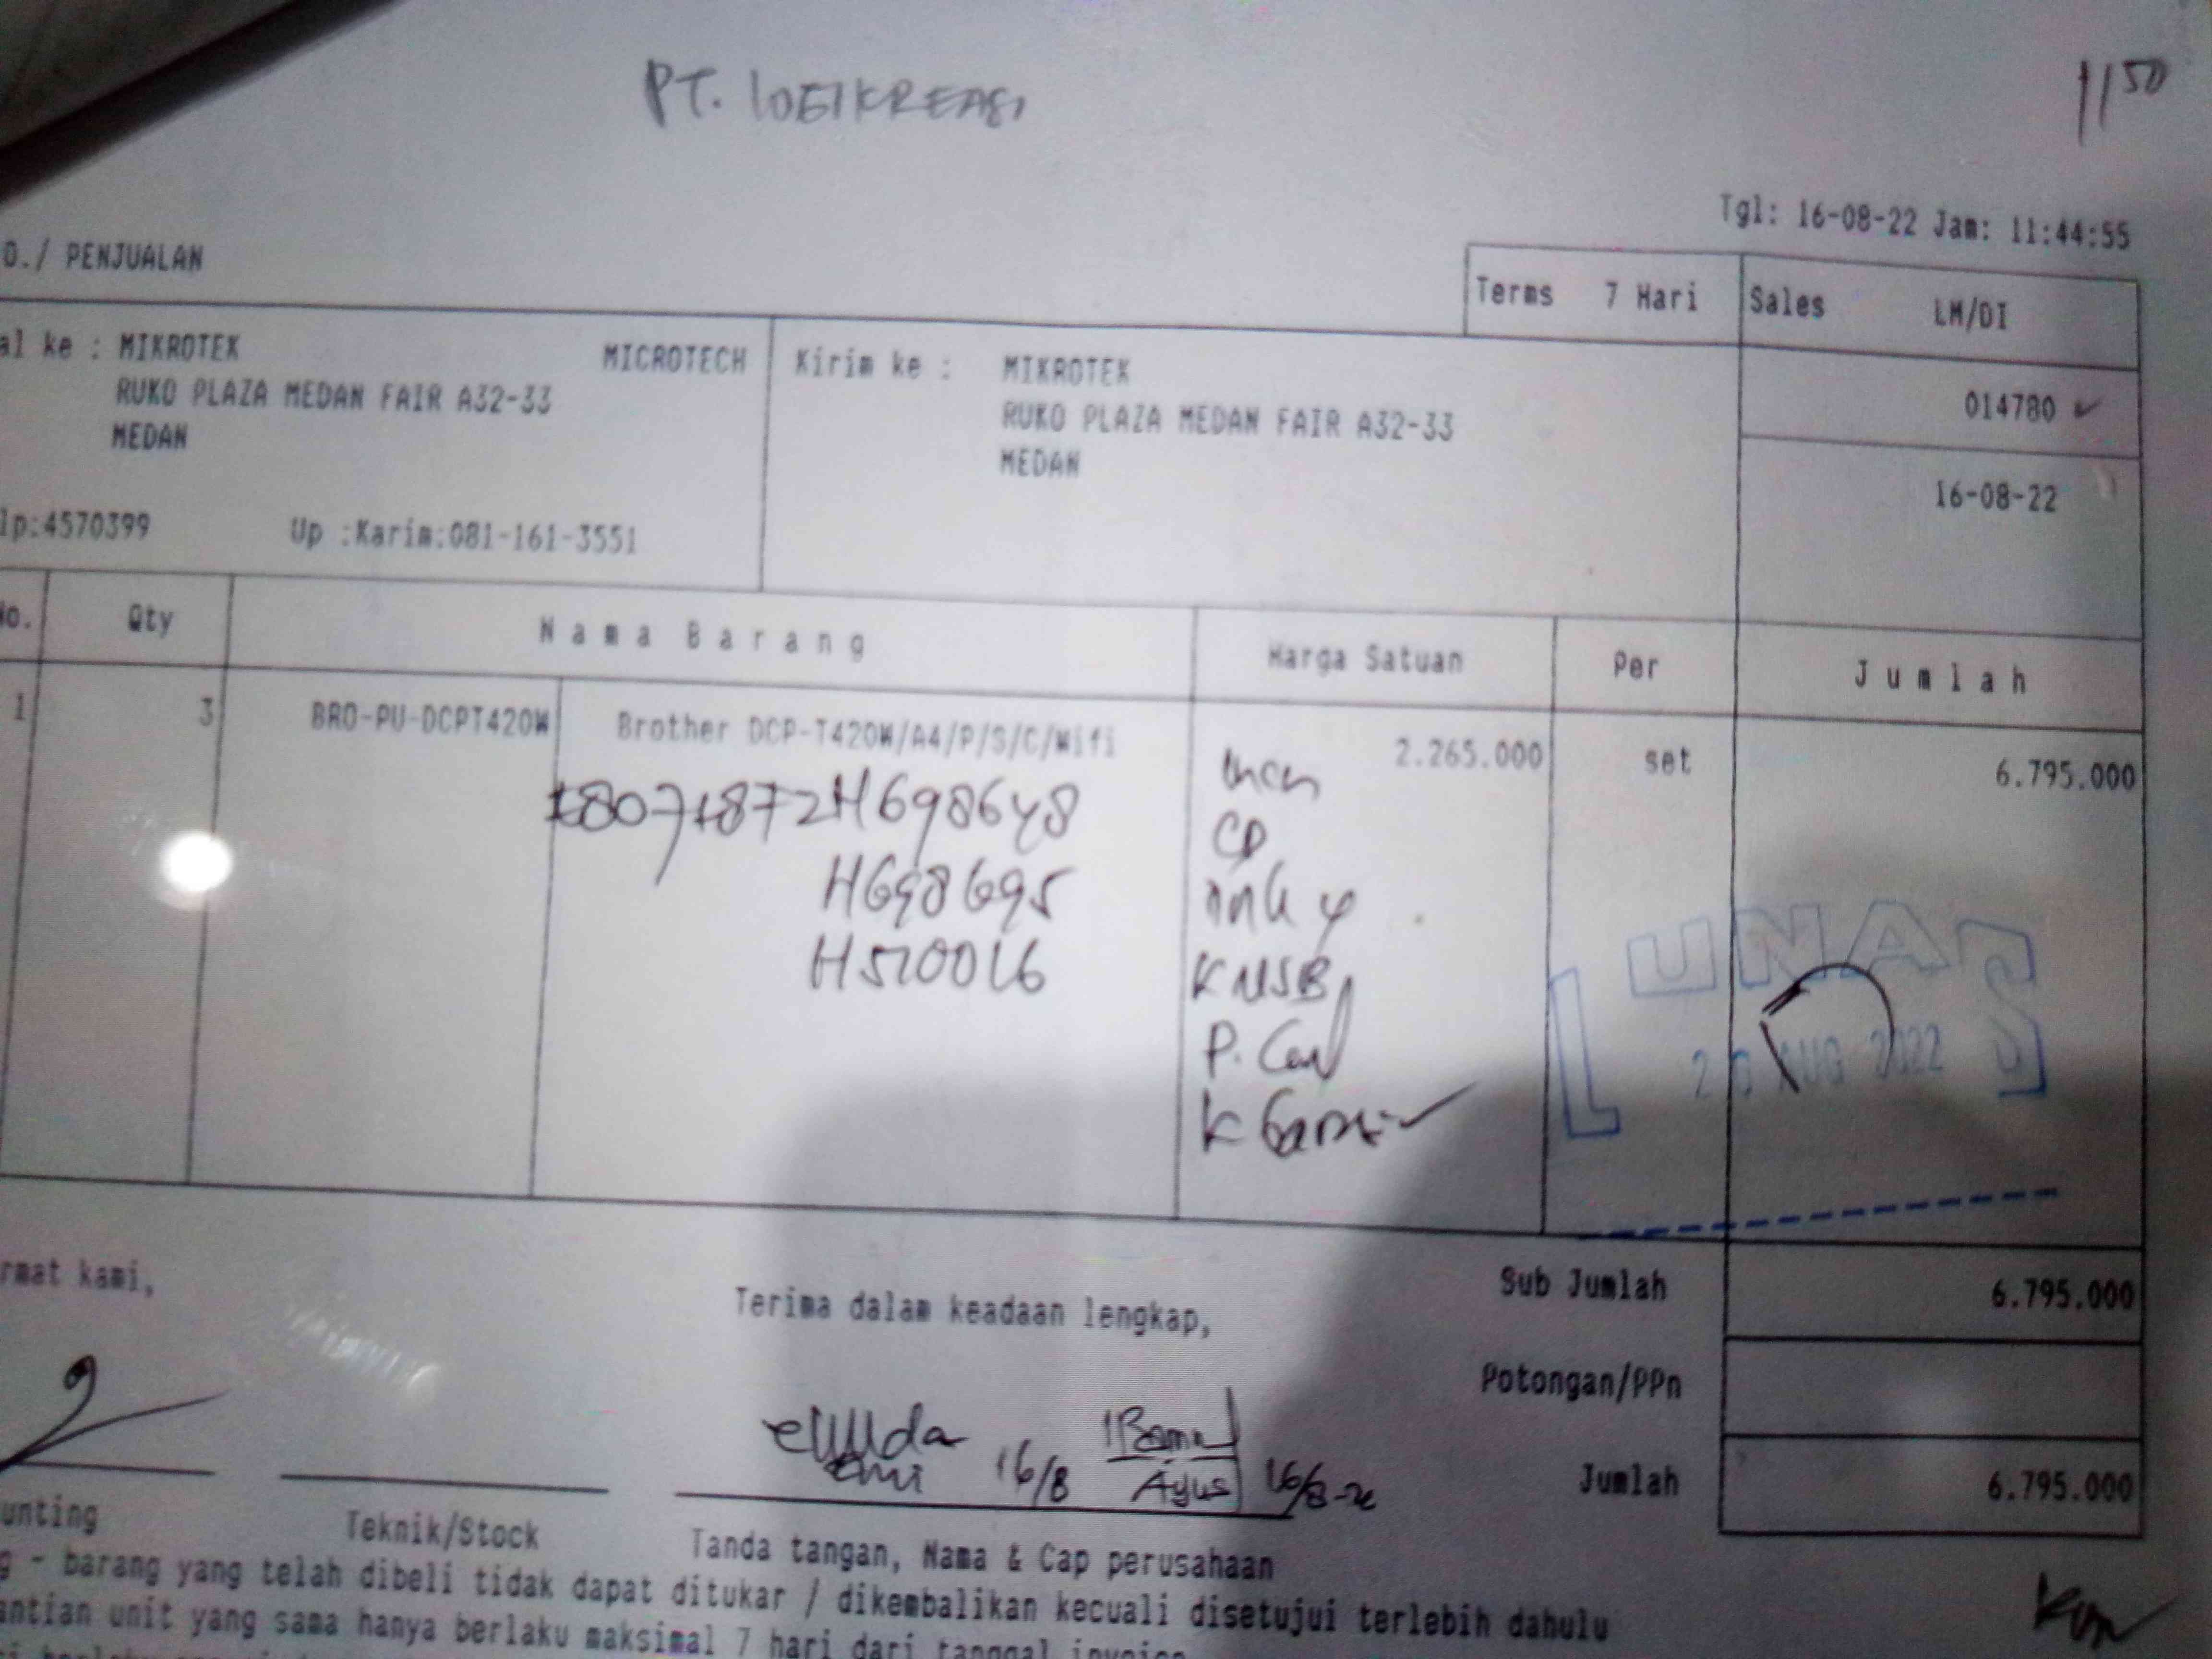 PT. LOGIKREASI
1150
Tgl: 16-08-22 Jam: 11:44:55
O./ PENJUALAN
Terms 7 Hari Sales LM/DI
al ke : MIKROTEK MICROTECH
RUKO PLAZA MEDAN FAIR A32-33
MEDAN
lp:4570399 Up :Karim:081-161-3551
Kirim ke : MIKROTEK
RUKO PLAZA MEDAN FAIR A32-33
MEDAN
014780
16-08-22
No. Qty Nama Barang Harga Satuan Per Jumlah
1 3 BRO-PU-DCPT420W Brother DCP-T420W/A4/P/S/C/Wifi 2.265.000 set 6.795.000
H698648
H698695
H510016
CD
ink 4
K USB
LUNAS
AUG 2022
Sub Jumlah 6.795.000
Potongan/PPn
Jumlah 6.795.000
rmat kami,
Terima dalam keadaan lengkap,
16/8
Agus
unting
Teknik/Stock
Tanda tangan, Nama & Cap perusahaan
g - barang yang telah dibeli tidak dapat ditukar / dikembalikan kecuali disetujui terlebih dahulu
antian unit yang sama hanya berlaku maksimal 7 hari dari tanggal invoice